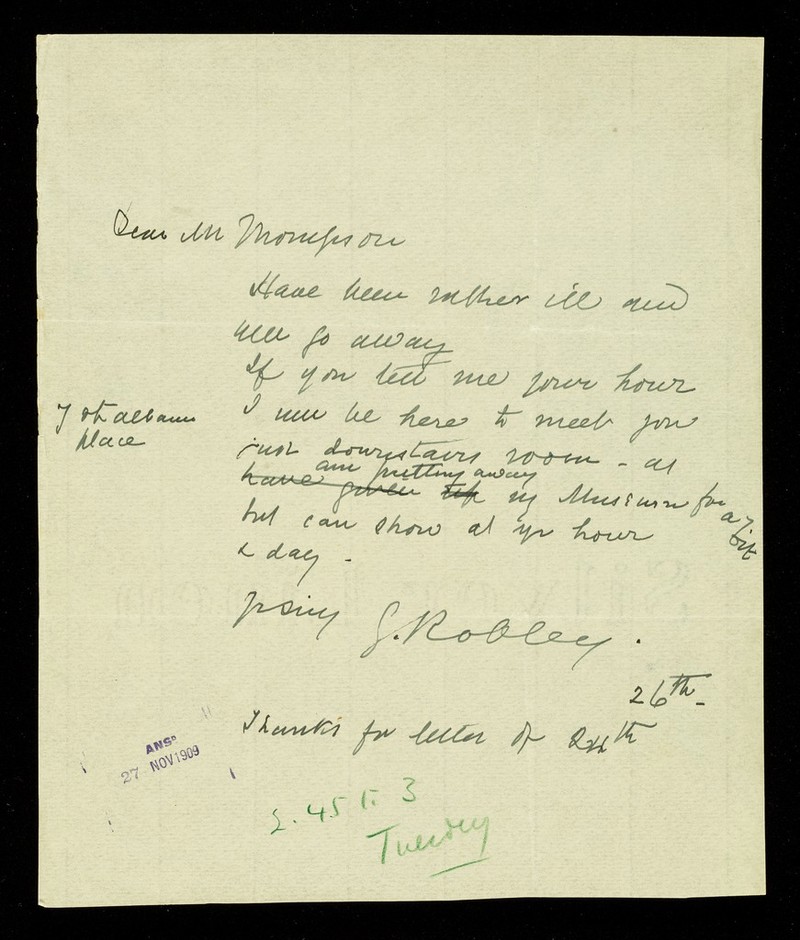 Dear Mr Thompson
Have been rather ill and
will go away
If you tell me your hour
7 St Albans
place
I will be here to meet you
in downstairs room - as
am putting away
have given up my Museum for
a bit
but can show at yr hour
& day -
Yrs sincy G. Robley.
26th-
Thanks for letter of 24th
ANSD
27 NOV 1909
2.45 to 3
Tuesday